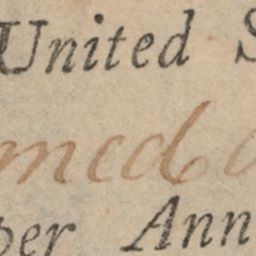 United S
med
per Ann